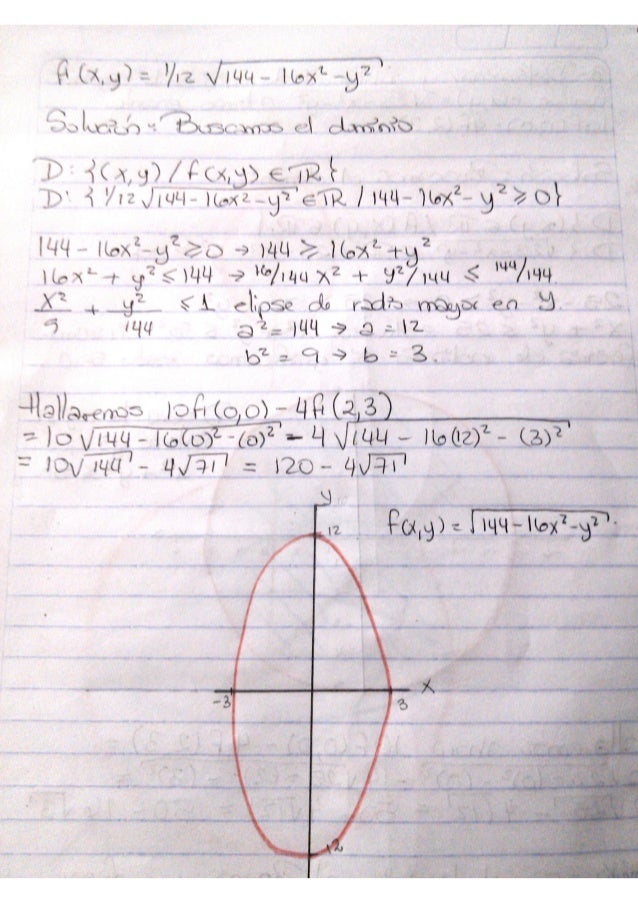 f1(x,y) = 1/12 √(144 - 16x² - y²).
Solución: Buscamos el dominio
D: {(x,y) / f(x,y) ∈ IR}
D: {1/12 √(144 - 16x² - y²) ∈ IR / 144 - 16x² - y² ≥ 0}
144 - 16x² - y² ≥ 0 → 144 ≥ 16x² + y²
16x² + y² ≤ 144 → 16/144 x² + y²/144 ≤ 144/144
x²/9 + y²/144 ≤ 1 elipse de radio mayor en y.
a² = 144 → a = 12
b² = 9 → b = 3.
Hallaremos 10f1(0,0) - 4f1(2,3)
= 10 √(144 - 16(0)² - (0)²) - 4 √(144 - 16(12)² - (3)²)
= 10√144 - 4√71 = 120 - 4√71
y
12
f(x,y) = √(144 - 16x² - y²).
-3
3
x
12